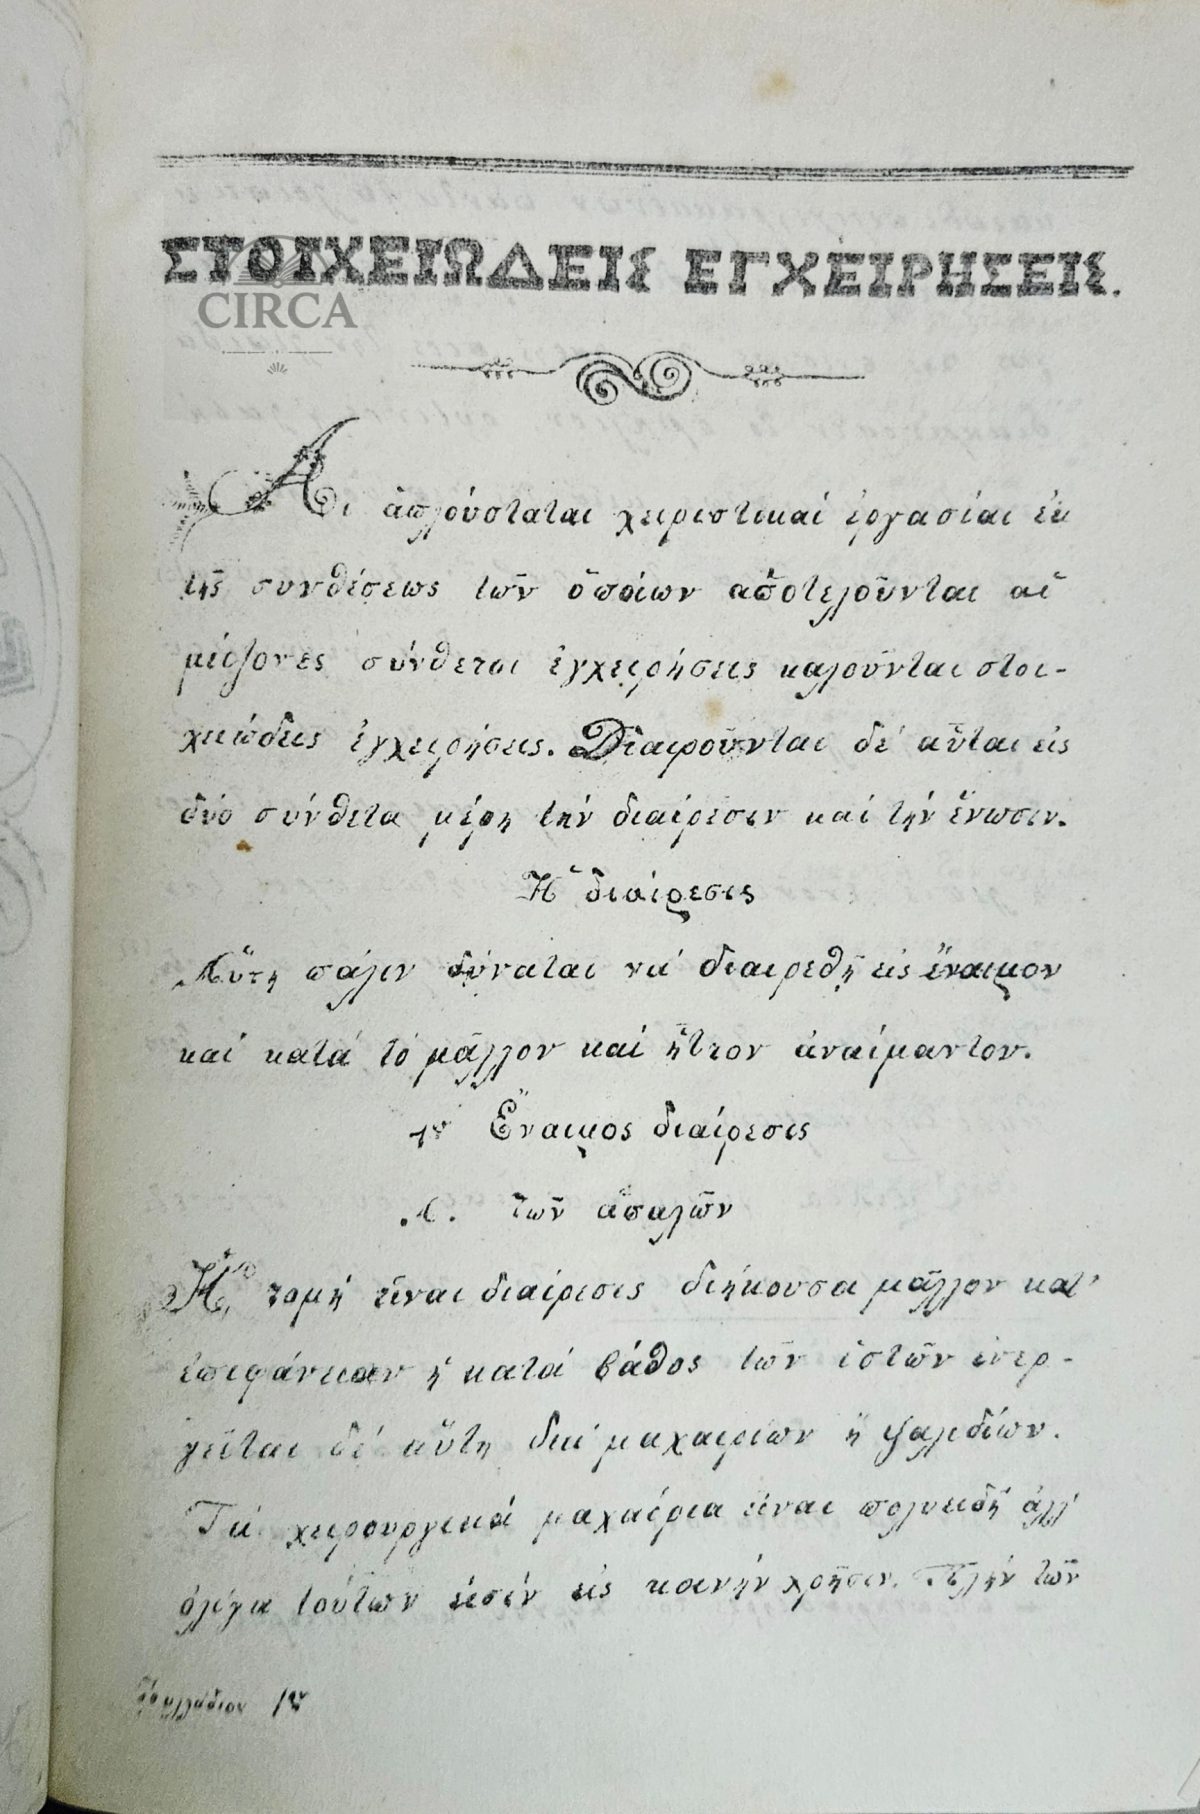 ΣΤΟΙΧΕΙΩΔΕΙΣ ΕΓΧΕΙΡΗΣΕΙΣ.
CIRCA
Αἱ ἁπλούσταται χειριστικαί ἐργασίαι ἐκ
τῆς συνθέσεως τῶν ὁποίων ἀποτελοῦνται αἱ
μείζονες σύνθετοι ἐγχειρήσεις καλοῦνται στοι-
χειώδεις ἐγχειρήσεις. Διαιροῦνται δέ αὗται εἰς
δύο σύνθετα μέρη τήν διαίρεσιν καί τήν ἕνωσιν.
Ἡ διαίρεσις
Αὕτη πάλιν δύναται νά διαιρεθῇ εἰς ἔναιμον
καί κατά τό μᾶλλον καί ἧττον ἀναίμαντον.
1ον Ἔναιμος διαίρεσις
Α. τῶν ἁπαλῶν
Ἡ τομή εἶναι διαίρεσις διήκουσα μᾶλλον κατ'
ἐπιφάνειαν ἤ κατά βάθος τῶν ἱστῶν ἐνερ-
γεῖται δέ αὕτη διά μαχαιρίων ἤ ψαλιδίων.
Τά χειρουργικά μαχαίρια εἶναι πολυειδῆ ἀλλ'
ὀλίγα τούτων εἰσίν εἰς κοινήν χρῆσιν. Πλήν τῶν
Φυλλάδιον 1ον